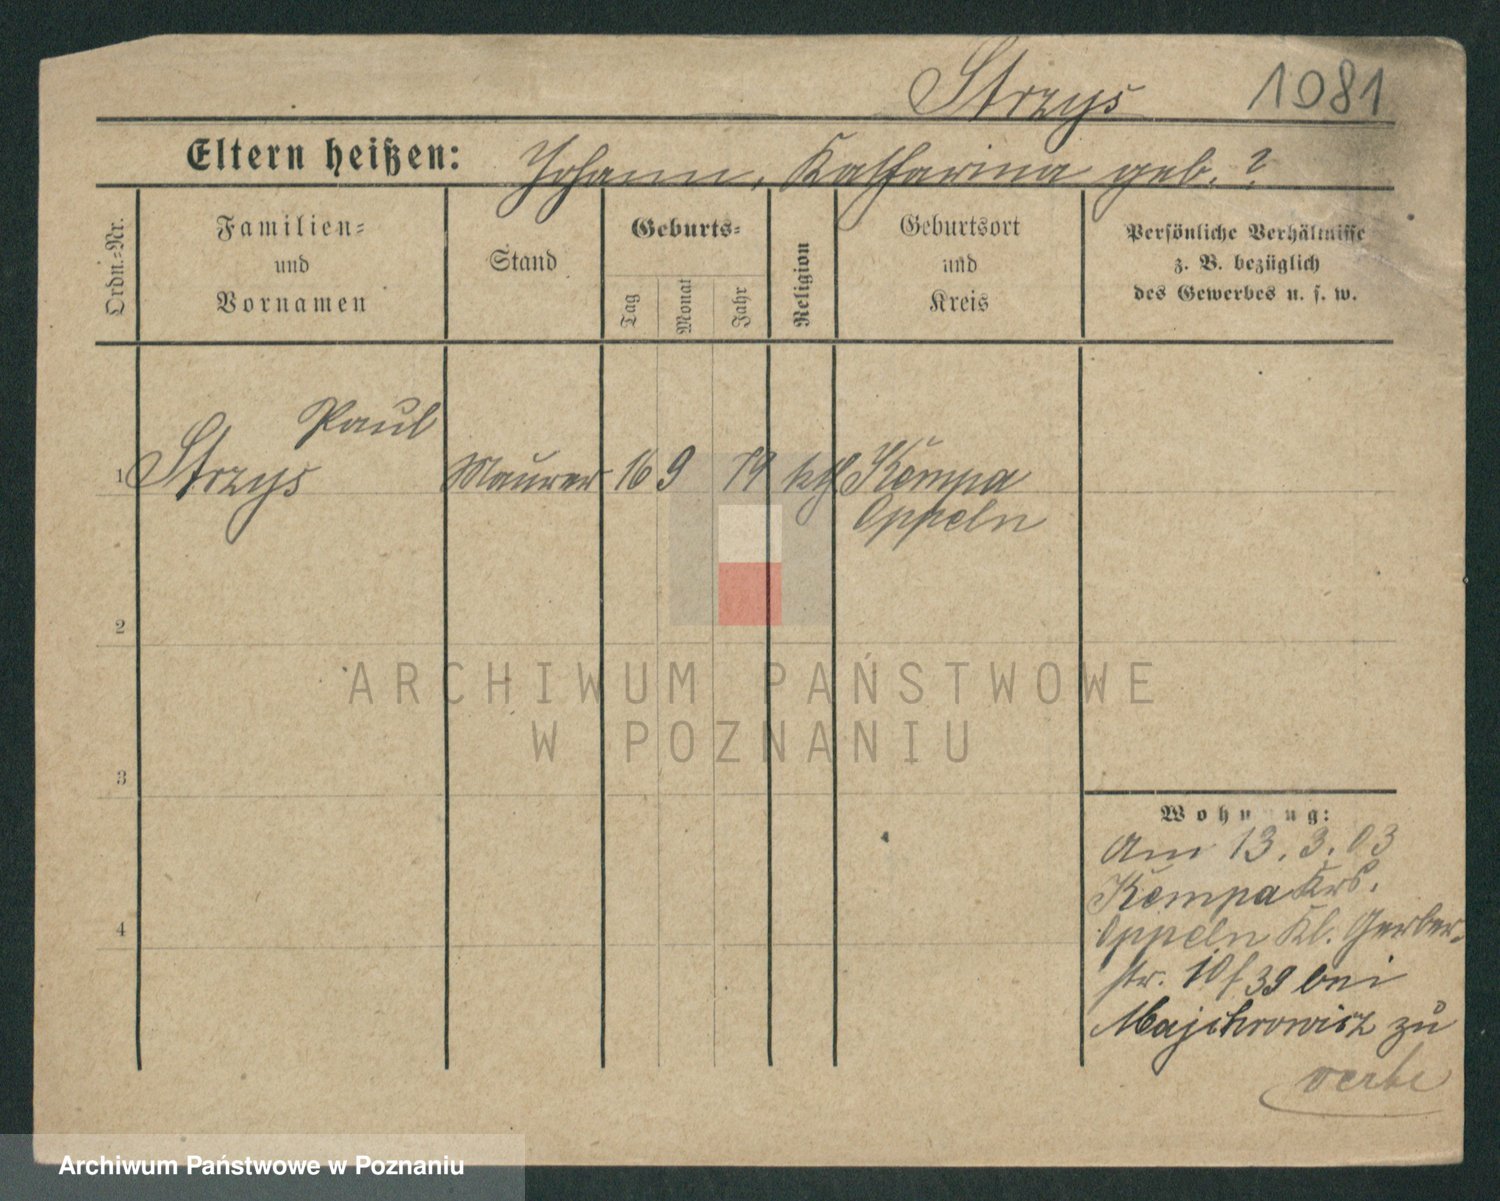 Strzys 1081
Eltern heißen: Johann, Katharina geb. ?
Ordn.-Nr.
Familien-
und
Vornamen
Stand
Geburts-
Tag
Monat
Jahr
Religion
Geburtsort
und
Kreis
Persönliche Verhältnisse
z. B. bezüglich
des Gewerbes u. s. w.
Paul
1 Strzys Maurer 16 9 79 kth Kempa
Oppeln
2
3
4
ARCHIWUM PAŃSTWOWE
W POZNANIU
Wohnung:
Am 13. 3. 03
Kempa Krs.
Oppeln Kl. Gerber-
str. 10 / 39 bei
Majchrowicz zu
Archiwum Państwowe w Poznaniu